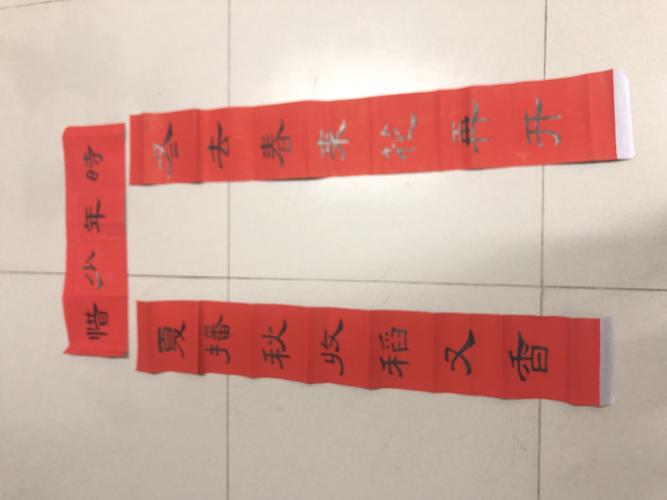 惜少年時
冬去春来花再开
夏播秋收稻又香